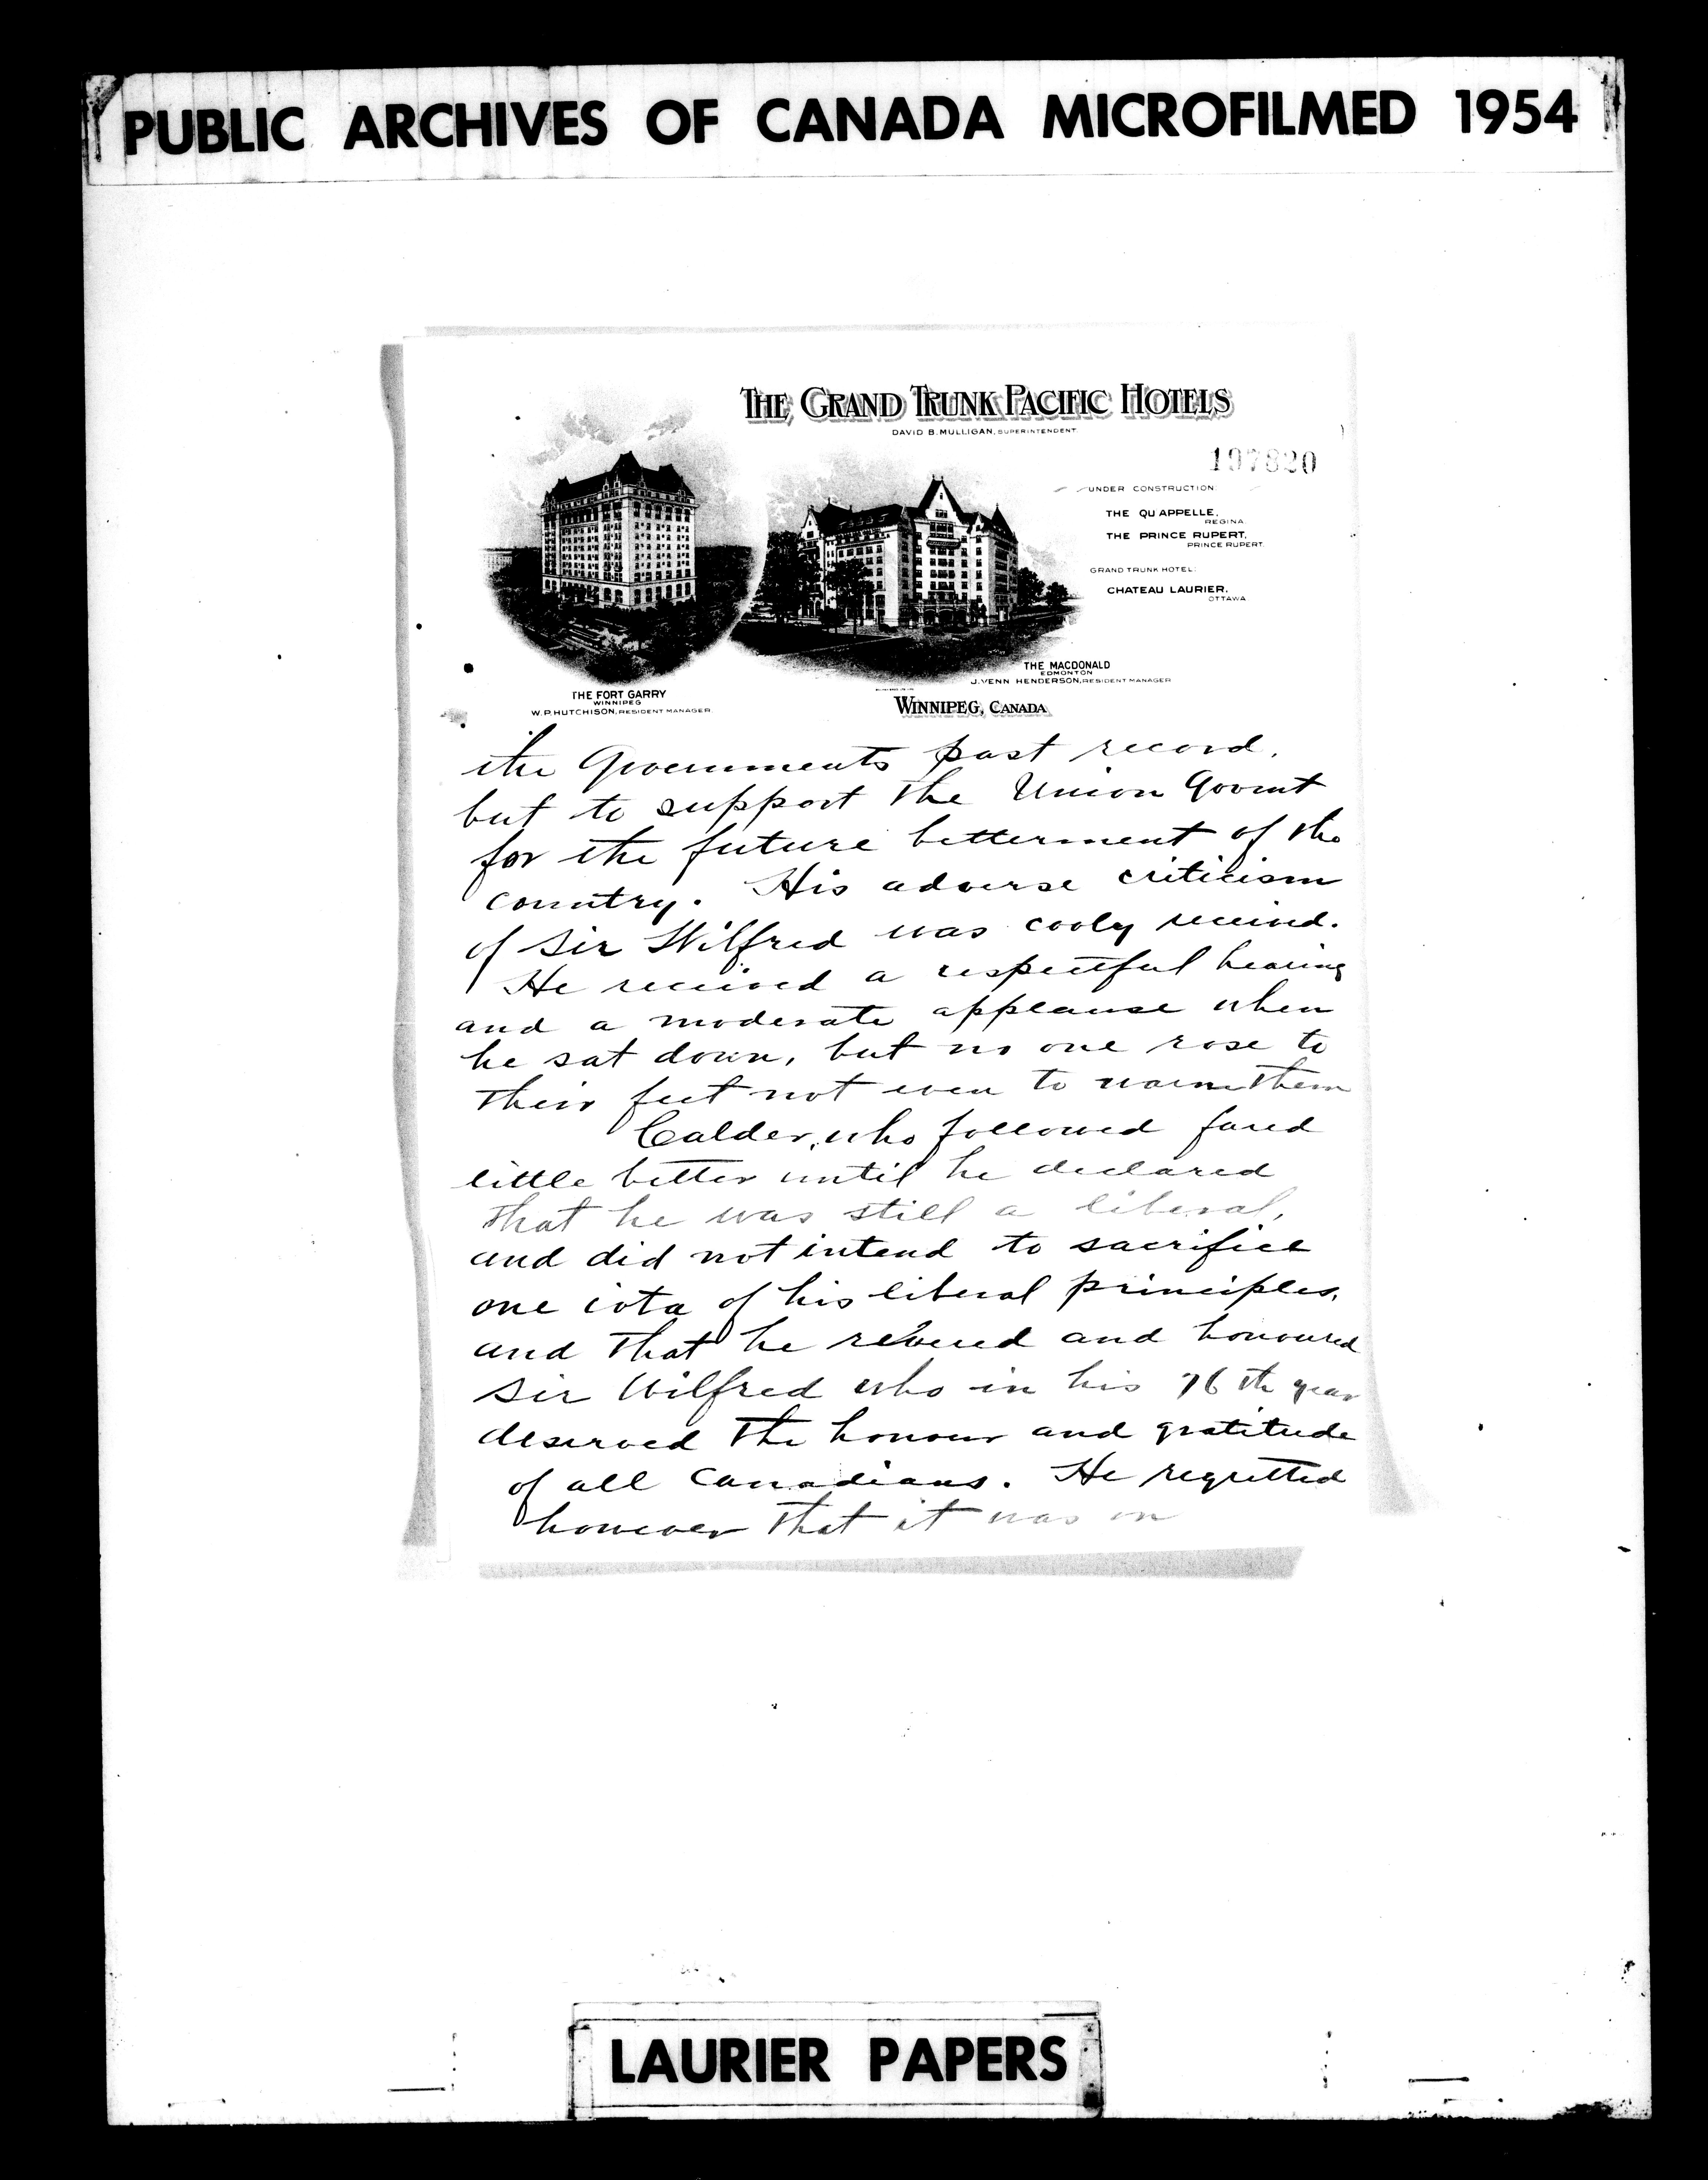 PUBLIC ARCHIVES OF CANADA MICROFILMED 1954
THE GRAND TRUNK PACIFIC HOTELS
DAVID B. MULLIGAN, SUPERINTENDENT.
197820
UNDER CONSTRUCTION:
THE QU'APPELLE,
REGINA.
THE PRINCE RUPERT,
PRINCE RUPERT.
GRAND TRUNK HOTEL:
CHATEAU LAURIER,
OTTAWA.
THE MACDONALD
EDMONTON
J. VENN HENDERSON, RESIDENT MANAGER
THE FORT GARRY
WINNIPEG
W. P. HUTCHISON, RESIDENT MANAGER.
WINNIPEG, CANADA
the Governments past record,
but to support the Union Govmt
for the future betterment of the
country. His adverse criticism
of Sir Wilfred was cooly received.
He received a respectful hearing
and a moderate applause when
he sat down, but no one rose to
their feet not even to warm them
Calder, who followed fared
little better until he declared
that he was still a liberal,
and did not intend to sacrifice
one iota of his liberal principles,
and that he revered and honoured
Sir Wilfred who in his 76th year
deserved the honour and gratitude
of all Canadians. He regretted
however that it was on
LAURIER PAPERS